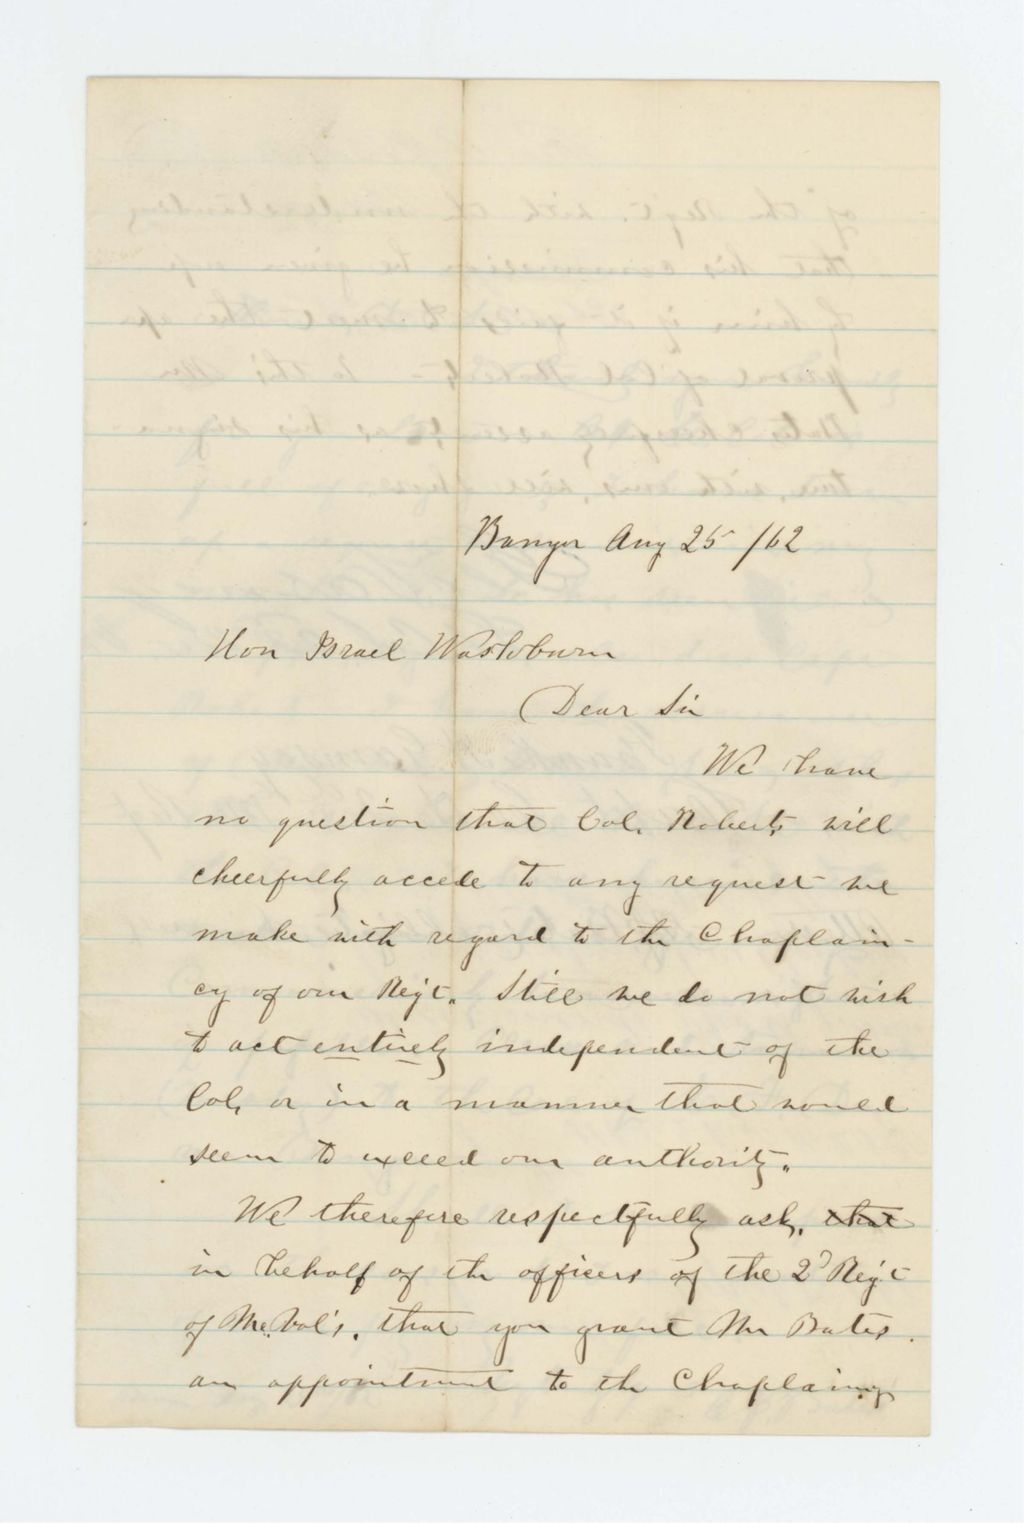 Bangor Aug 25 /62
Hon Israel Washburn
Dear Sir
We have
no question that Col. Roberts will
cheerfully accede to any request we
make with regard to the Chaplain-
cy of our Regt. Still we do not wish
to act entirely independent of the
Col, or in a manner that would
seem to exceed our authority.
We therefore respectfully ask, that
in behalf of the officers of the 2d Reg't
of Me. Vol's, that you grant Mr Bates
an appointment to the Chaplaincy